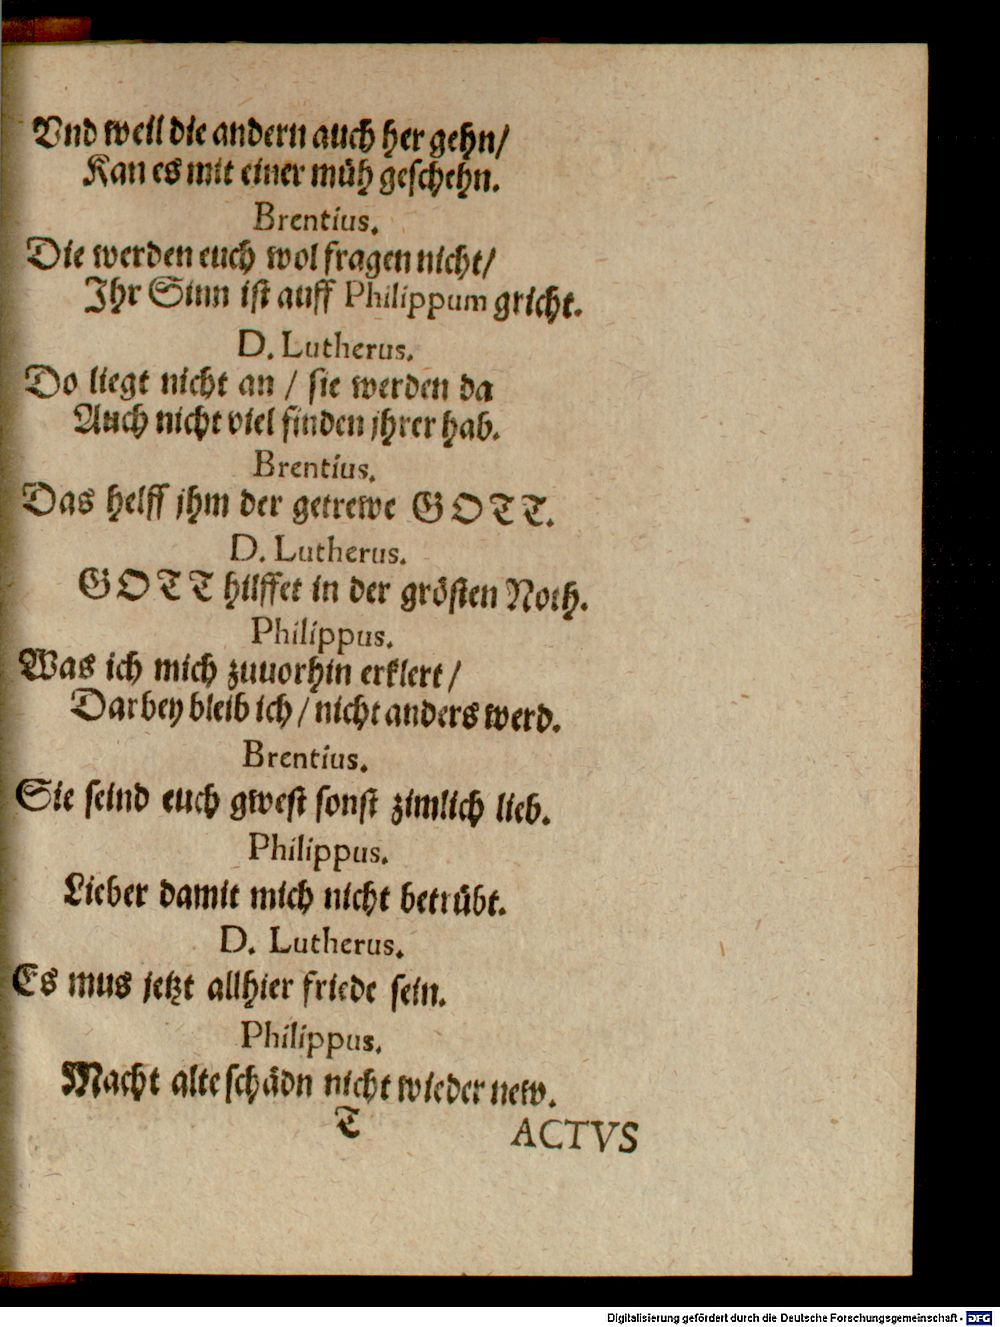 Vnd weil die andern auch her gehn/
Kan es mit einer müh geschehn.
Brentius.
Die werden euch wol fragen nicht/
Ihr Sinn ist auff Philippum gricht.
D. Lutherus.
Do liegt nicht an / sie werden da
Auch nicht viel finden jhrer hab.
Brentius.
Das helff jhm der getrewe GOTT.
D. Lutherus.
GOTT hilffet in der grösten Noth.
Philippus.
Was ich mich zuuorhin erklert/
Darbey bleib ich / nicht anders werd.
Brentius.
Sie seind euch gwest sonst zimlich lieb.
Philippus.
Lieber damit mich nicht betrübt.
D. Lutherus.
Es mus jetzt allhier friede sein.
Philippus.
Macht alte schädn nicht wieder new.
T ACTVS
Digitalisierung gefördert durch die Deutsche Forschungsgemeinschaft - DFG